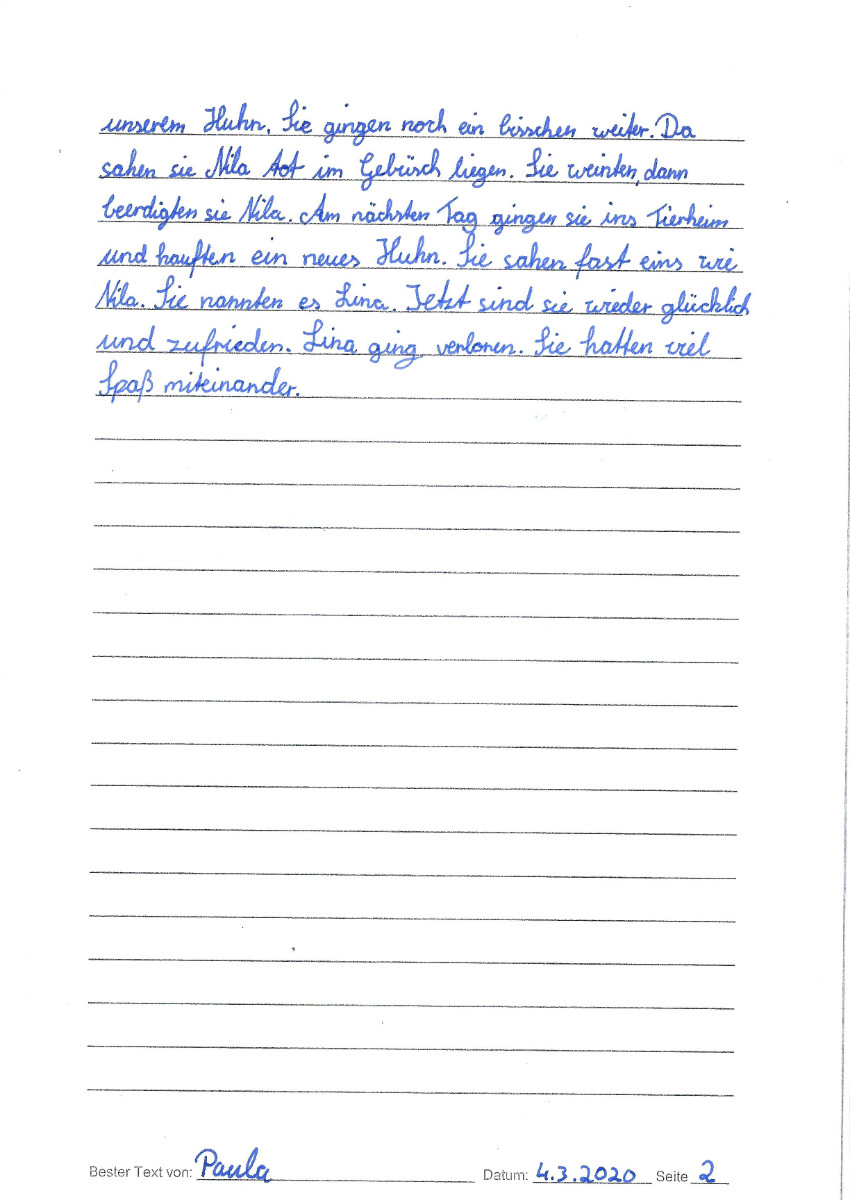 unserem Huhn. Sie gingen noch ein bisschen weiter. Da
sahen sie Nila tot im Gebüsch liegen. Sie weinten, dann
beerdigten sie Nila. Am nächsten Tag gingen sie ins Tierheim
und kauften ein neues Huhn. Sie sahen fast eins wie
Nila. Sie nannten es Lina. Jetzt sind sie wieder glücklich
und zufrieden. Lina ging verloren. Sie hatten viel
Spaß miteinander.
Bester Text von: Paula Datum: 4.3.2020 Seite 2